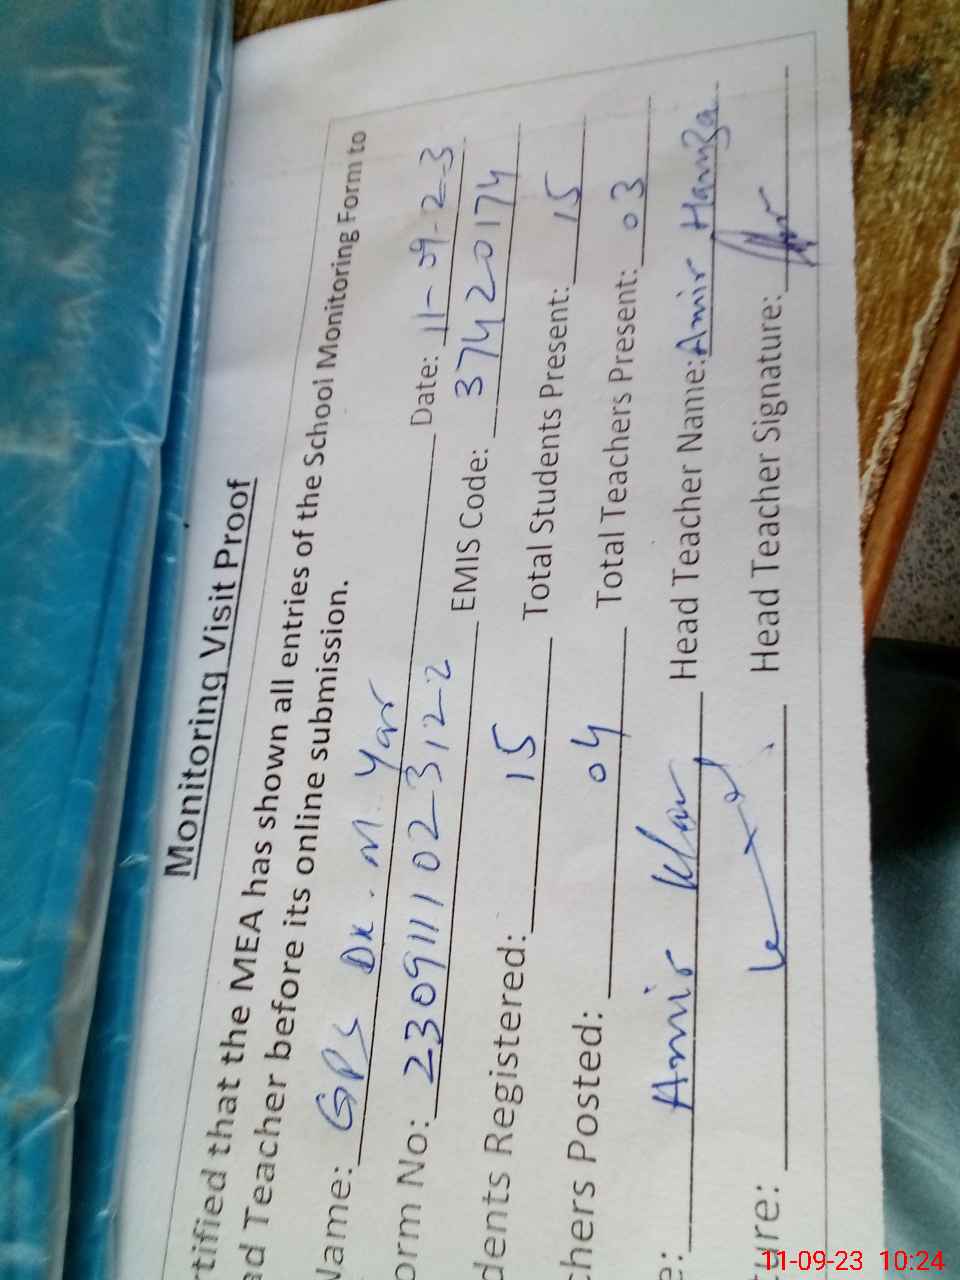 Monitoring Visit Proof
rtified that the MEA has shown all entries of the School Monitoring Form to
ad Teacher before its online submission.
Name: GPS DK. M. Yar Date: 11-09-23
orm No: 2309111023122 EMIS Code: 37420174
dents Registered: 15 Total Students Present: 15
chers Posted: 04 Total Teachers Present: 03
e: Amir Khan Head Teacher Name: Amir Hamza
ture: Head Teacher Signature:
11-09-23 10:24